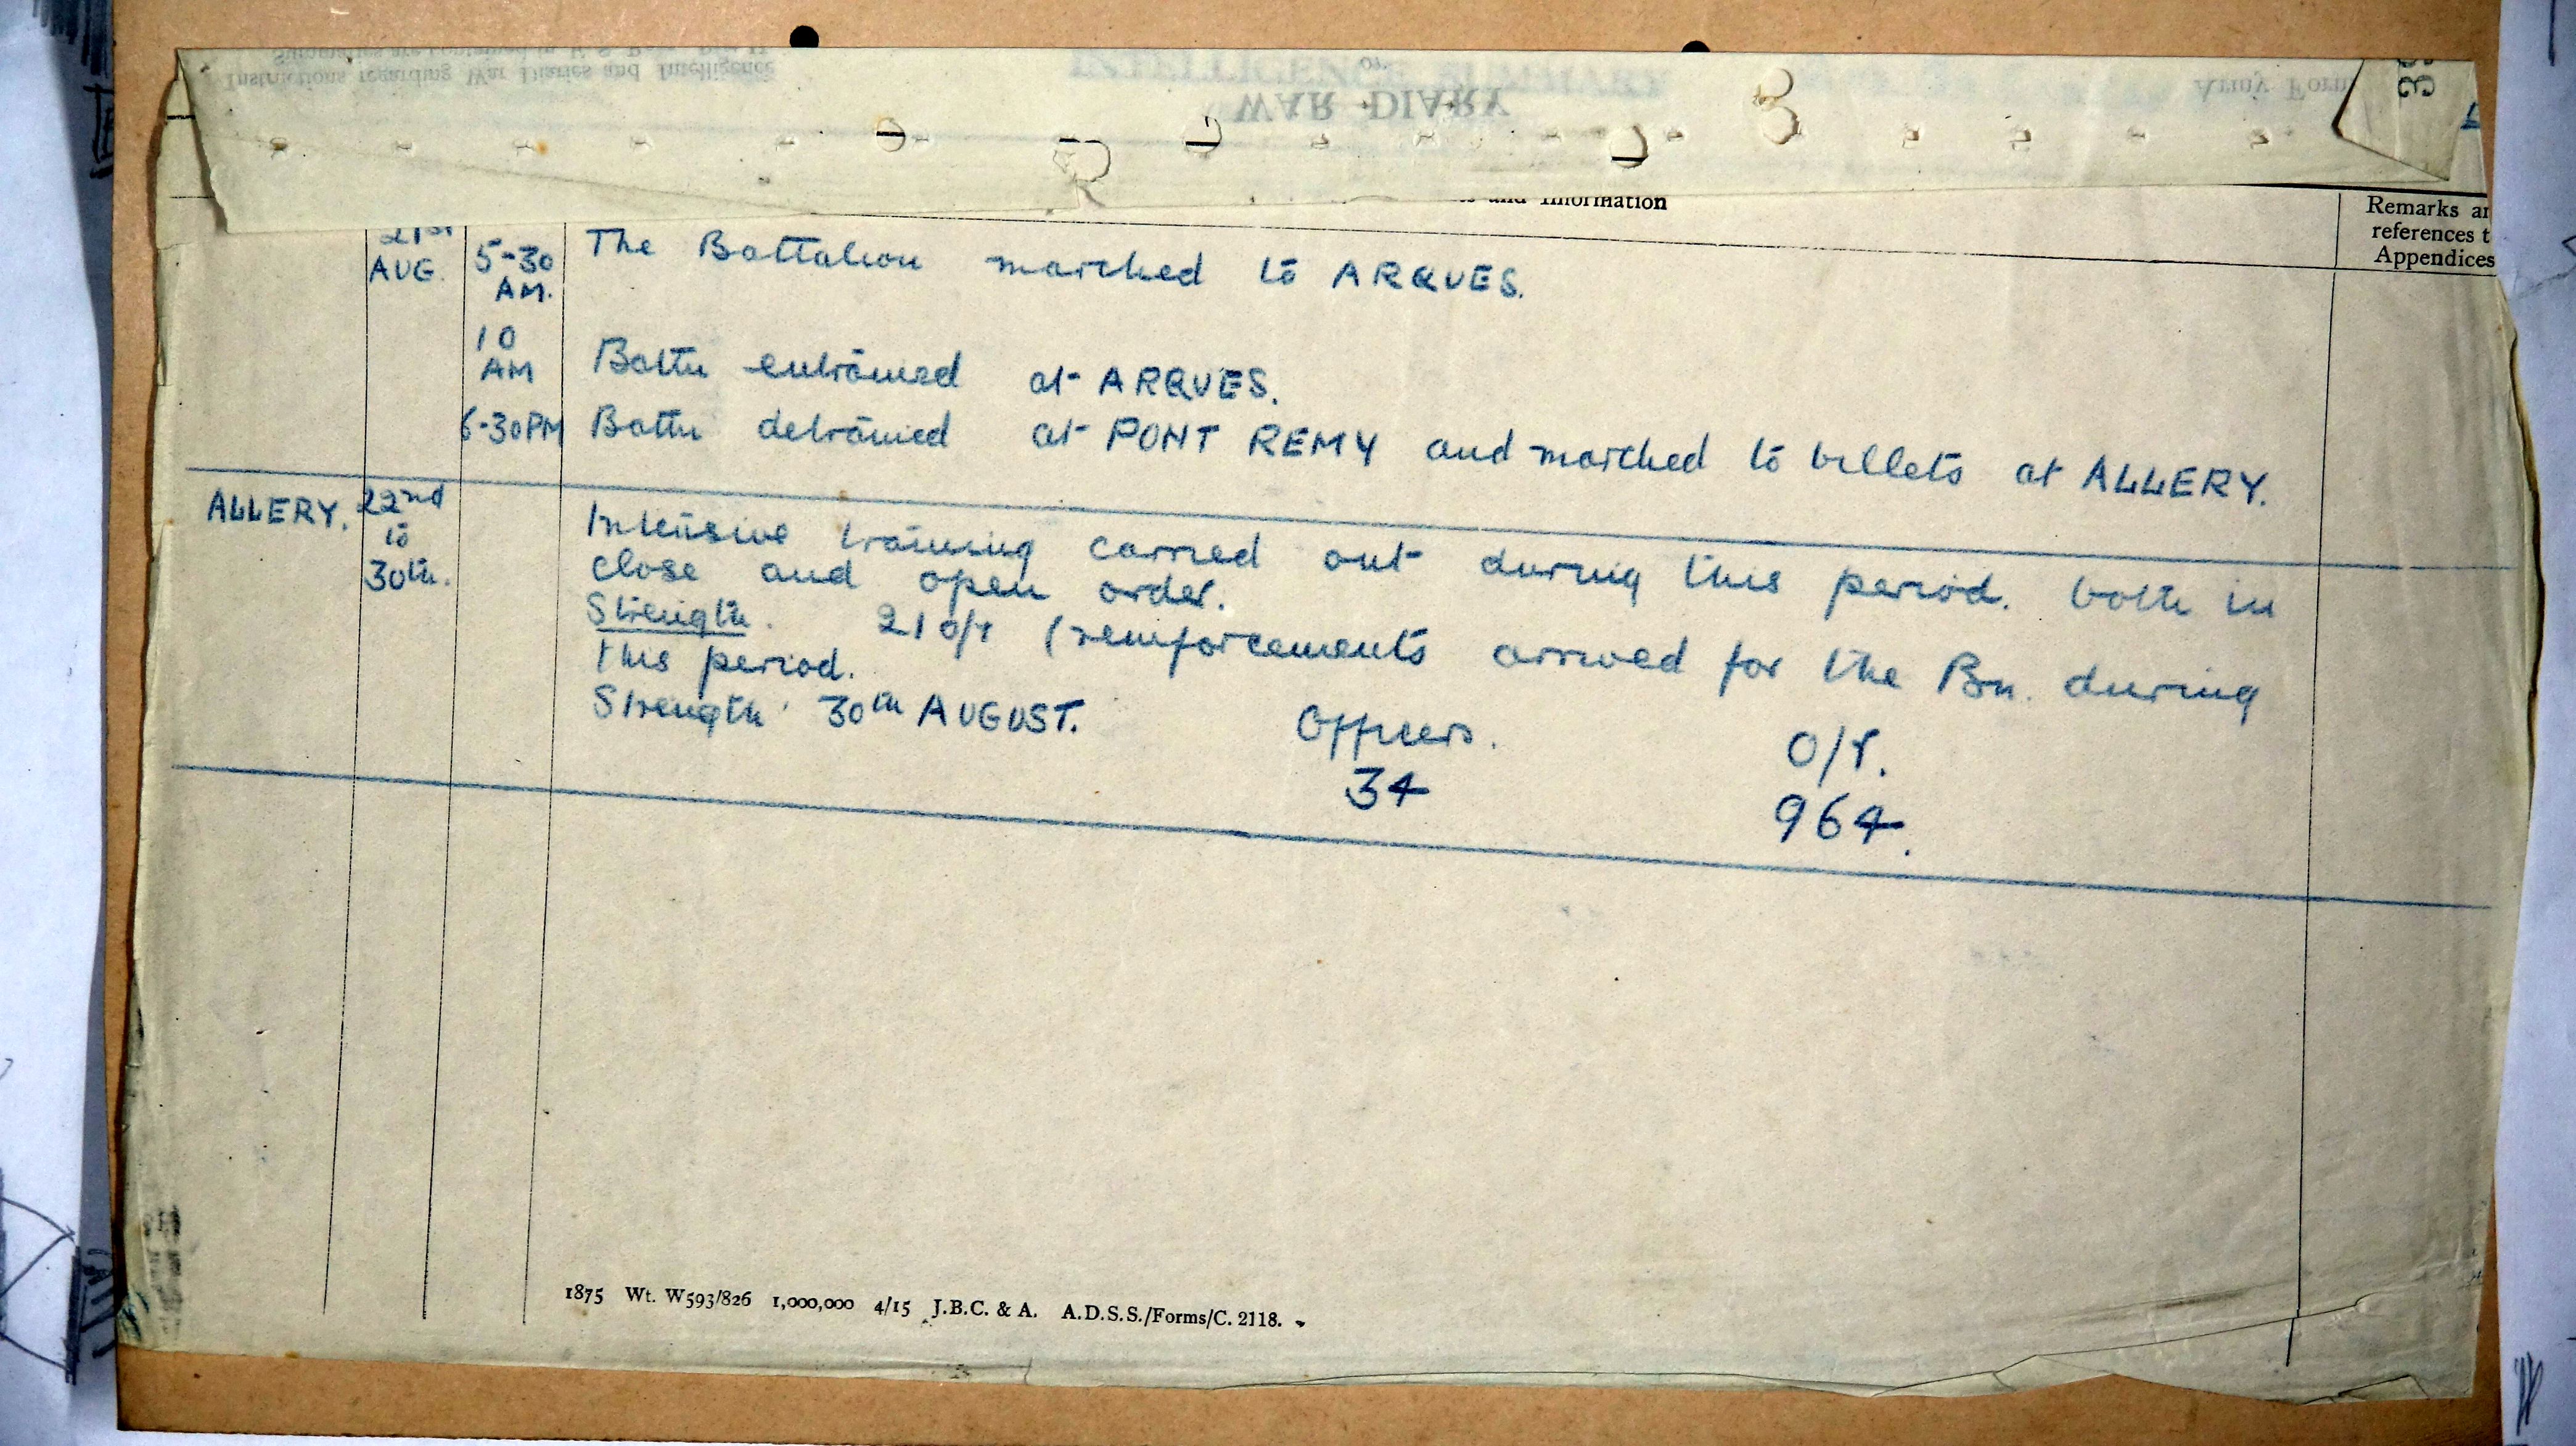 Instructions regarding War Diaries and Intelligence
WAR DIARY
or
INTELLIGENCE SUMMARY
Army Form
and Information
Remarks an
references t
Appendices
21st AUG. 5-30 AM. The Battalion marched to ARQUES.
10 AM Battn entrained at ARQUES.
6-30PM Battn detrained at PONT REMY and marched to billets at ALLERY.
ALLERY. 22nd to 30th. Intensive training carried out during this period. both in
close and open order.
Strength. 21 o/r (reinforcements arrived for the Bn. during
this period.
Strength 30th AUGUST. Officers. O/r.
34 964.
1875 Wt. W593/826 1,000,000 4/15 J.B.C. & A. A.D.S.S./Forms/C. 2118.